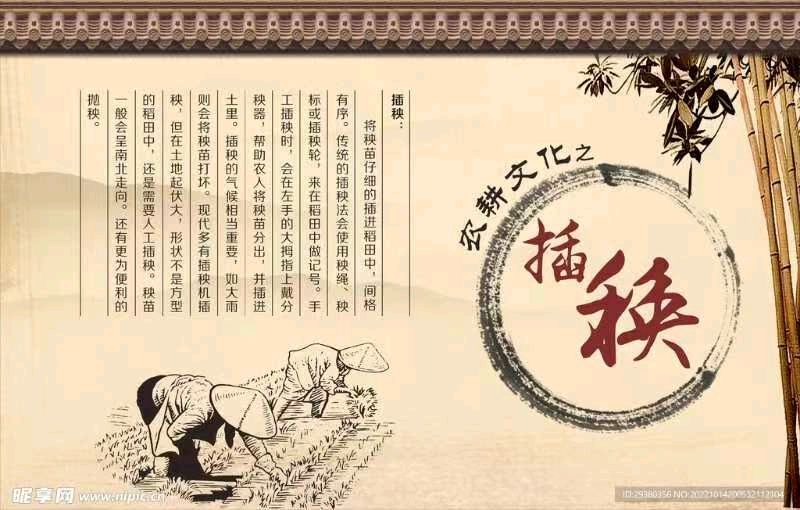 农耕文化之
插秧
插秧：
将秧苗仔细的插进稻田中，间格
有序。传统的插秧法会使用秧绳、秧
标或插秧轮，来在稻田中做记号。手
工插秧时，会在左手的大拇指上戴分
秧器，帮助农人将秧苗分出，并插进
土里。插秧的气候相当重要，如大雨
则会将秧苗打坏。现代多有插秧机插
秧，但在土地起伏大，形状不是方型
的稻田中，还是需要人工插秧。秧苗
一般会呈南北走向。还有更为便利的
抛秧。
昵享网 www.nipic.cn
ID:29380356 NO:20221014200532112104